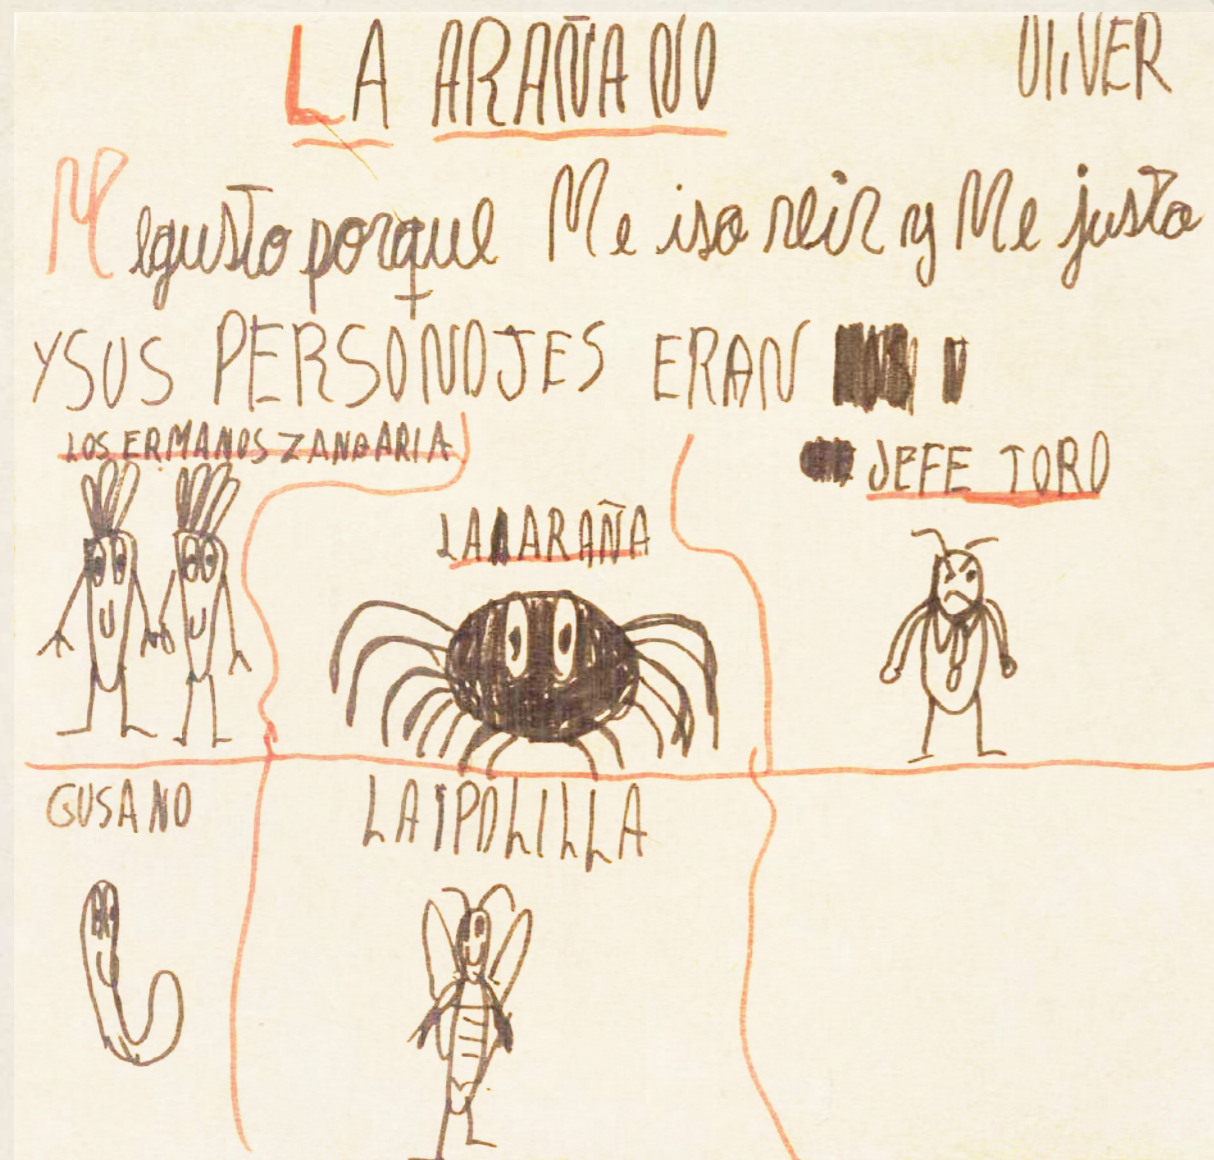 LA ARAÑA NO
OLIVER
Me gusto porque Me iso reir y Me justa
Y SUS PERSONAJES ERAN
LOS ERMANOS ZANAARIA
JEFE TORO
LA ARAÑA
GUSANO
LA POLILLA